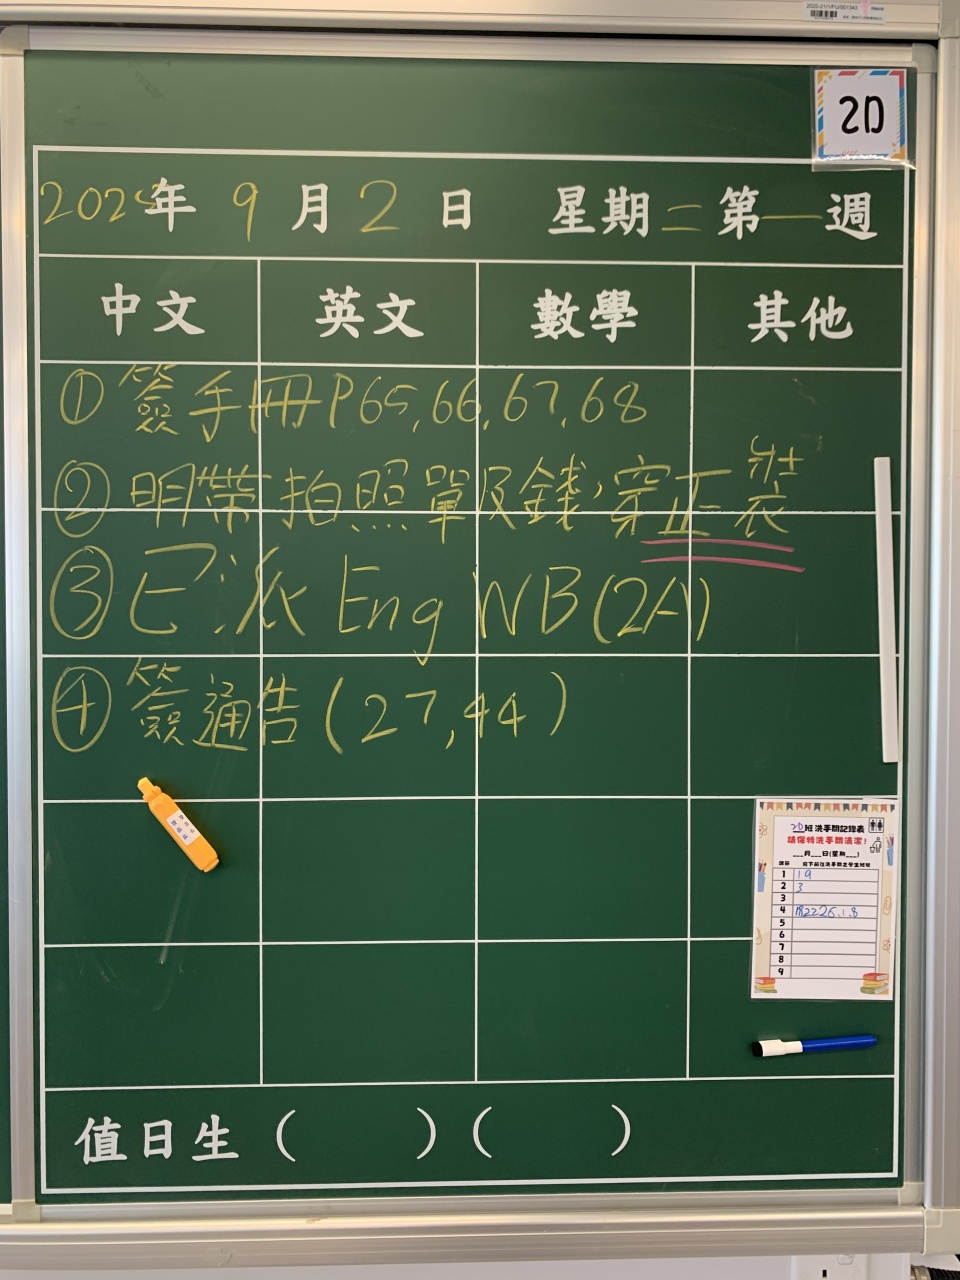 2020-21/1/FU/001343
2D
2025年9月2日 星期二第一週
中文 英文 數學 其他
①簽手冊P65,66,67,68
②明帶拍照單及錢，穿正裝
③已派 Eng WB(2A)
④簽通告(27,44)
2D班洗手間記錄表
請保持洗手間清潔！
___月___日(星期___)
1 19
2 3
3
4
5
6
7
8
9
值日生（ ）（ ）